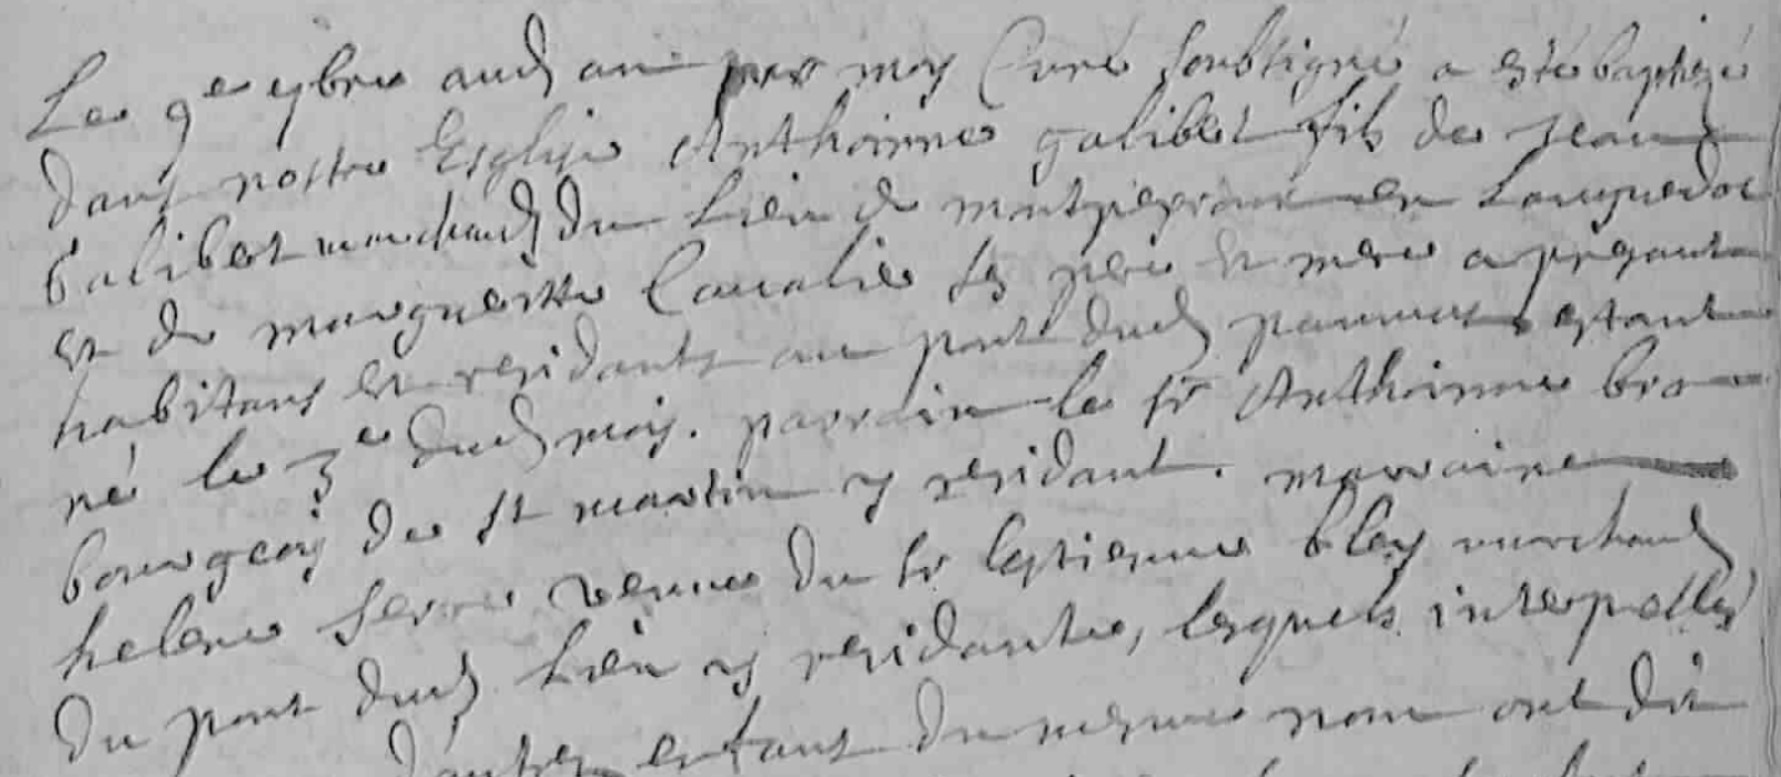 Le 9e xbre aud an par moy Curé soubsigné a esté baptizé
dans nostre Esglise Anthoinne galibert fils de Jean
Galibert marchand du Lieu de en Languedoc
et de margueritte Cavalier ses pere et mere a presant
habitans et residants au pont dud estant
né le 3e dud mois. parrain le sr Anthoinne bro
bourgeois de st martin y residant. marraine
helene serre veuve du sr estienne bley marchand
du pont dud Lieu y residante, lesquels interpellés
d'autres enfant du mesme nom ont dit